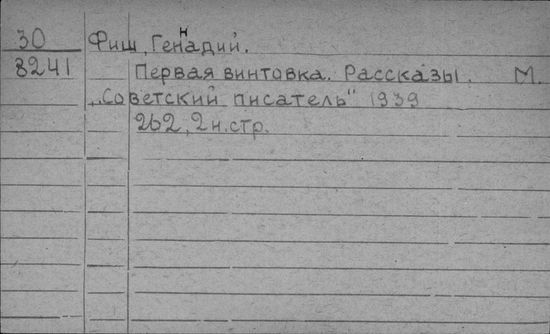 30 Фиш, Геннадий.
8241 Первая винтовка. Рассказы. М.
„Советский писатель" 1939
262, 2 н. стр.